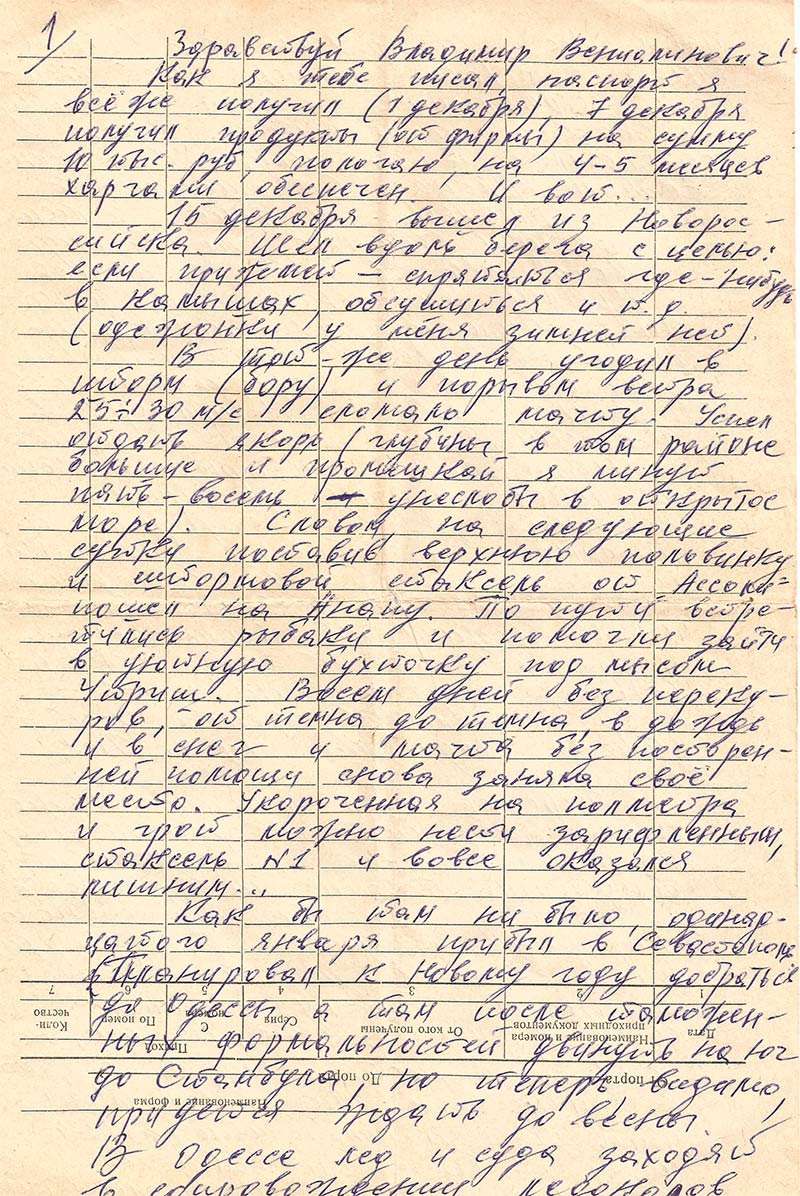 1/
Здравствуй Владимир Вениаминович!
Как я тебе писал, паспорт я
всё же получил (1 декабря), 7 декабря
получил продукты (от фирмы) на сумму
10 тыс. руб, полагаю, на 4-5 месяцев
харчами обеспечен. И вот...
15 декабря вышел из Новорос-
сийска. Шел вдоль берега с целью:
если прижмет - спрятаться где-нибудь
в камышах, обсушиться и т.д.
(одежонки у меня зимней нет).
В тот-же день угодил в
шторм (бору) и порывом ветра
25÷30 м/с сломало мачту. Успел
отдать якорь (глубины в том районе
большие и промешкай я минут
пять-восемь унесло бы в открытое
море). Словом, на следующие
сутки поставив верхнюю половинку
и штормовой стаксель от
пошел на Анапу. По пути встре-
тились рыбаки и помогли зайти
в уютную бухточку под мысом
Утриш. Восем дней без переку-
ров, от темна до темна, в дождь
и в снег и мачта без посторон-
ней помощи снова заняла своё
место. Укороченная на полметра
и грот можно нести зарифленным,
стаксель №1 и вовсе оказался
лишним...
Как бы там ни было, одинад-
цатого января прибыл в Севастополь
Планировал к Новому году добраться
7 6 5 4 3 2 1
до Одессы а там после таможен-
Коли-
чество
По номен
С
номера
Серия
От кого получены
Наименование и номера
приходных документов
Дата
ных формальностей двинуть на юг
Приход
до Стамбула, но теперь видимо,
До порта
От порта
Наименование и форма
придется ждать до весны!
В Одессе лед и суда заходят
в сопровождении ледоколов